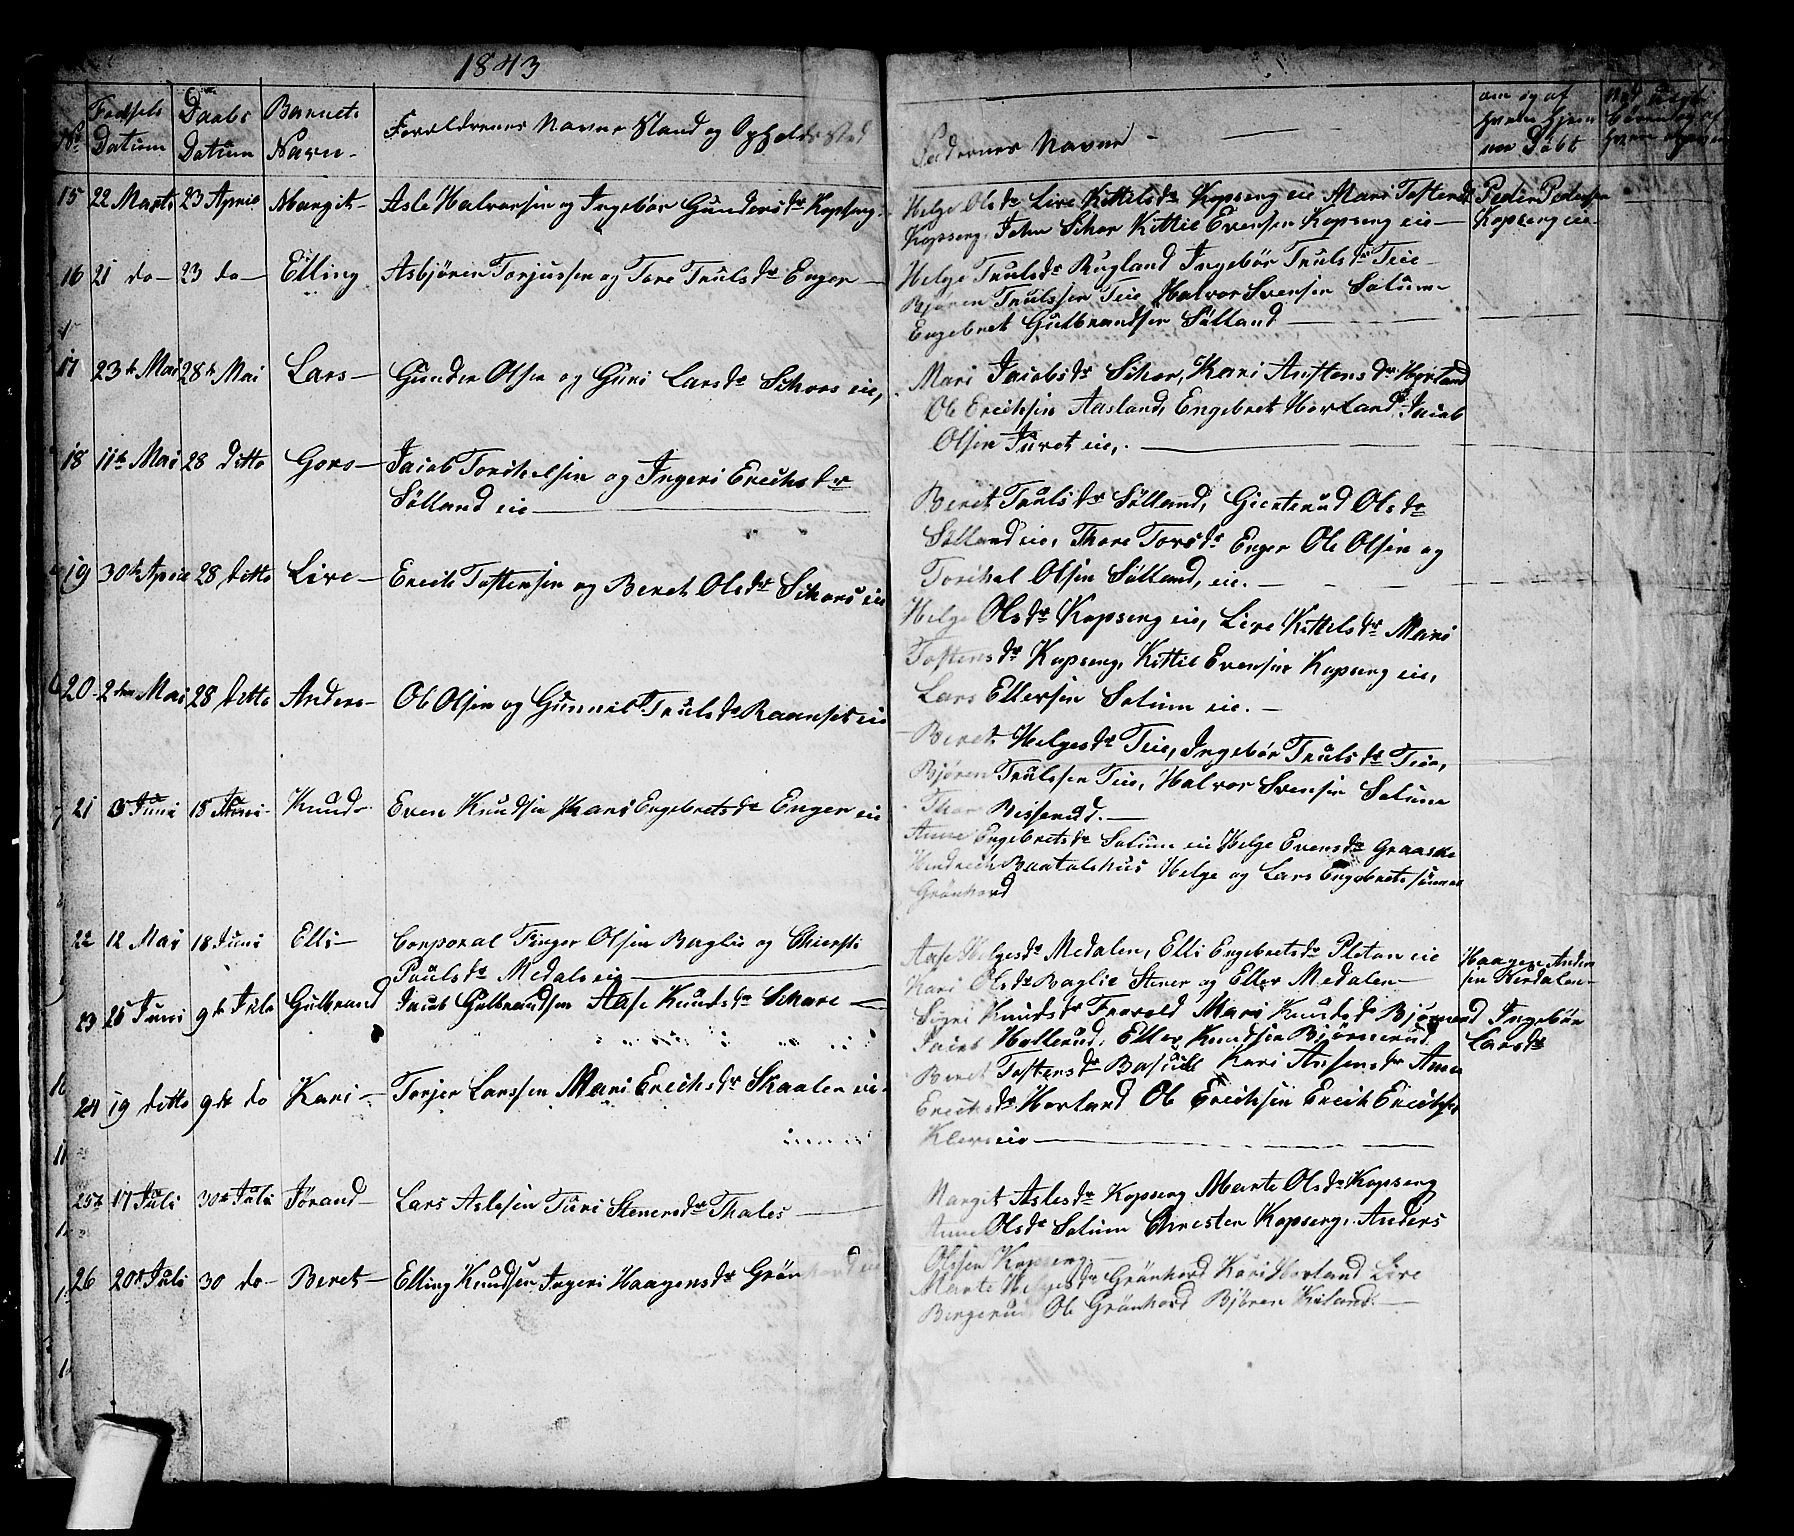 1843
No Fødsels Datum Daabs Datum Barnets Navn Foreldrenes Navne Stand og Opholds Sted
Faddernes Navne
om og af hvem hjemme Døbt
15 22 Marts 23 April Margit Asle Halvorsen og Ingebør Gundersdr Kopseng
Helge Olsdr Live Kittelsdr Kopseng eie Mari Tostensdr
Kopseng, John Skar Kittil Evensen Kopseng eie
Peder Pedersen
Kopseng eie
16 21 do 23 do Elling Asbjøren Torjussen og Tore Trulsdr Enger
Helge Trulsdr Rugland Ingebør Trulsdr Teie
Bjøren Trulssen Teie Halvor Svensen Solum
Engebret Gulbrandsen Sølland
17 23de Mai 28de Mai Lars Gunder Olsen og Guri Larsdr Skars eie,
Mari Jacobsdr Skar, Kari Anstensdr Horland
Ole Ericksen Aasland, Engebret Horland Jacob
Olsen Juret eie,
18 11te Mai 28 ditto Goro Jacob Torckelsen og Ingeri Ericksdr
Sølland eie
Beret Trulsdr Sølland, Giertrud Olsdr
Sølland eie, Thore Torsdr Enger Ole Olsen og
Torckel Olsen Sølland, eie.
19 30te April 28 ditto Live Erick Tostensen og Beret Olsdr Skars eie
Helge Olsdr Kopseng eie, Live Kittelsdr Mari
Tostensdr Kopseng, Kittil Evensen Kopseng eie,
Lars Ellersen Solum eie.
20 2den Mai 28 ditto Anders Ole Olsen og Gunnil Trulsdr Raanset eie
Beret Helgesdr Teie, Ingebør Trulsdr Teie,
Bjøren Trulssen Teie, Halvor Svensen Solum
Thor Bisserud.
21 5 Juni 18 Juni Knud Even Knudsen Kari Engebretsdr Enger eie
Anne Engebretsdr Solum eie Helge Evensdr
Hendrick Helge og Lars Engebretssønner
Grønhord
22 12 Mai 18 Juni Elli Corporal Finger Olsen Baglie og Chiersti
Paulsdr Medals eie
Aase Helgesdr Medalen, Elli Engebretsdr Pletan eie
Kari Olsdr Baglie Stener og Eller Medalen
Haagen Andersen
23 25 Juni 9de Julo Gulbrand Jacob Gulbrandsen Aase Knudsdr Skare
Sigri Knudsdr Mari Knudsdr Bjørnerud
Jacob Hollerud, Eller Knudsen Bjørnerud
Ingebør
Larsdr
24 19 ditto 9de do Kari Torjer Larssen Mari Ericksdr Skaalen eie
Beret Tostensdr Kari Anstensdr Anne
Ericksdr Horland Ole Ericksen Erick Ericksen
25 17 Juli 30te Juli Jørand Lars Aslesen Turi Stenersdr Thales
Margit Aslesdr Kopseng Marte Olsdr Kopseng
Anne Olsdr Solum Chresten Kopseng, Anders
Olsen Kopseng
26 20de Juli 30 do Beret Elling Knudsen Ingeri Haagensdr Grønhord eie
Marte Helgesdr Grønhord Kari Horland Live
Bergerud, Ole Grønhord Bjøren